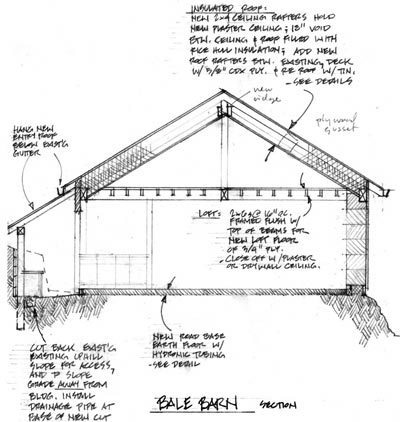 INSULATED ROOF:
NEW 2x4 CEILING RAFTERS HOLD
NEW PLASTER CEILING; 12" VOID
BTW. CEILING & ROOF FILLED WITH
RICE HULL INSULATION; ADD NEW
ROOF RAFTERS BTW. EXISTING, DECK
W/ 5/8" CDX PLY. & RE ROOF W/ TIN.
-SEE DETAILS
new
ridge
plywood
gusset
HANG NEW
ENTRY ROOF
BELOW EXIST'G
GUTTER
LOFT: 2x6s @ 16" OC.
FRAMED FLUSH W/
TOP OF BEAMS FOR
NEW LOFT FLOOR
OF 3/4" PLY.
CLOSE OFF W/ PLASTER
OR DRYWALL CEILING.
CUT BACK EXIST'G
EXISTING UPHILL
SLOPE FOR ACCESS,
AND TO SLOPE
GRADE AWAY FROM
BLDG. INSTALL
DRAINAGE PIPE AT
BASE OF NEW CUT
NEW ROAD BASE
EARTH FLOOR W/
HYDRONIC TUBING
-SEE DETAIL
BALE BARN SECTION